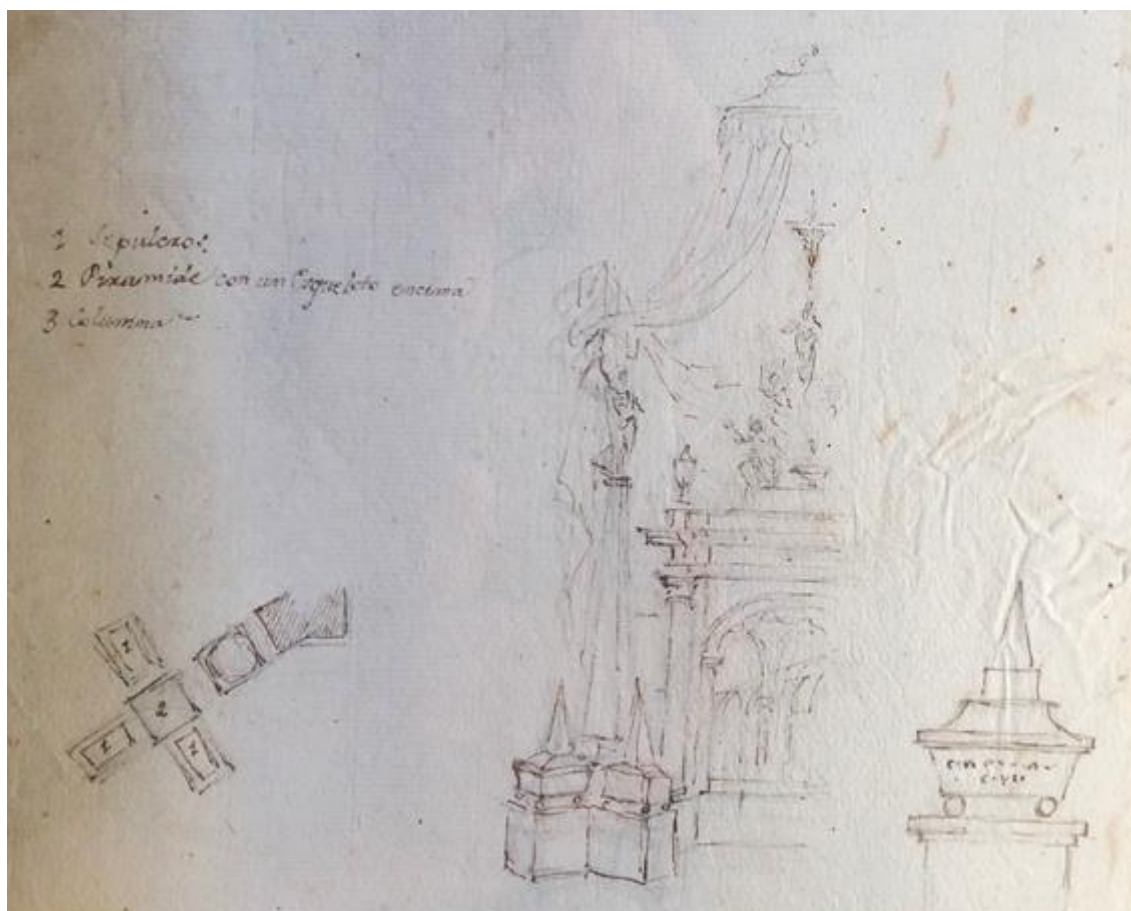 1 Sepulcros
2 Piramide con un Esqueleto encima
3 Columna
1
2
1
1